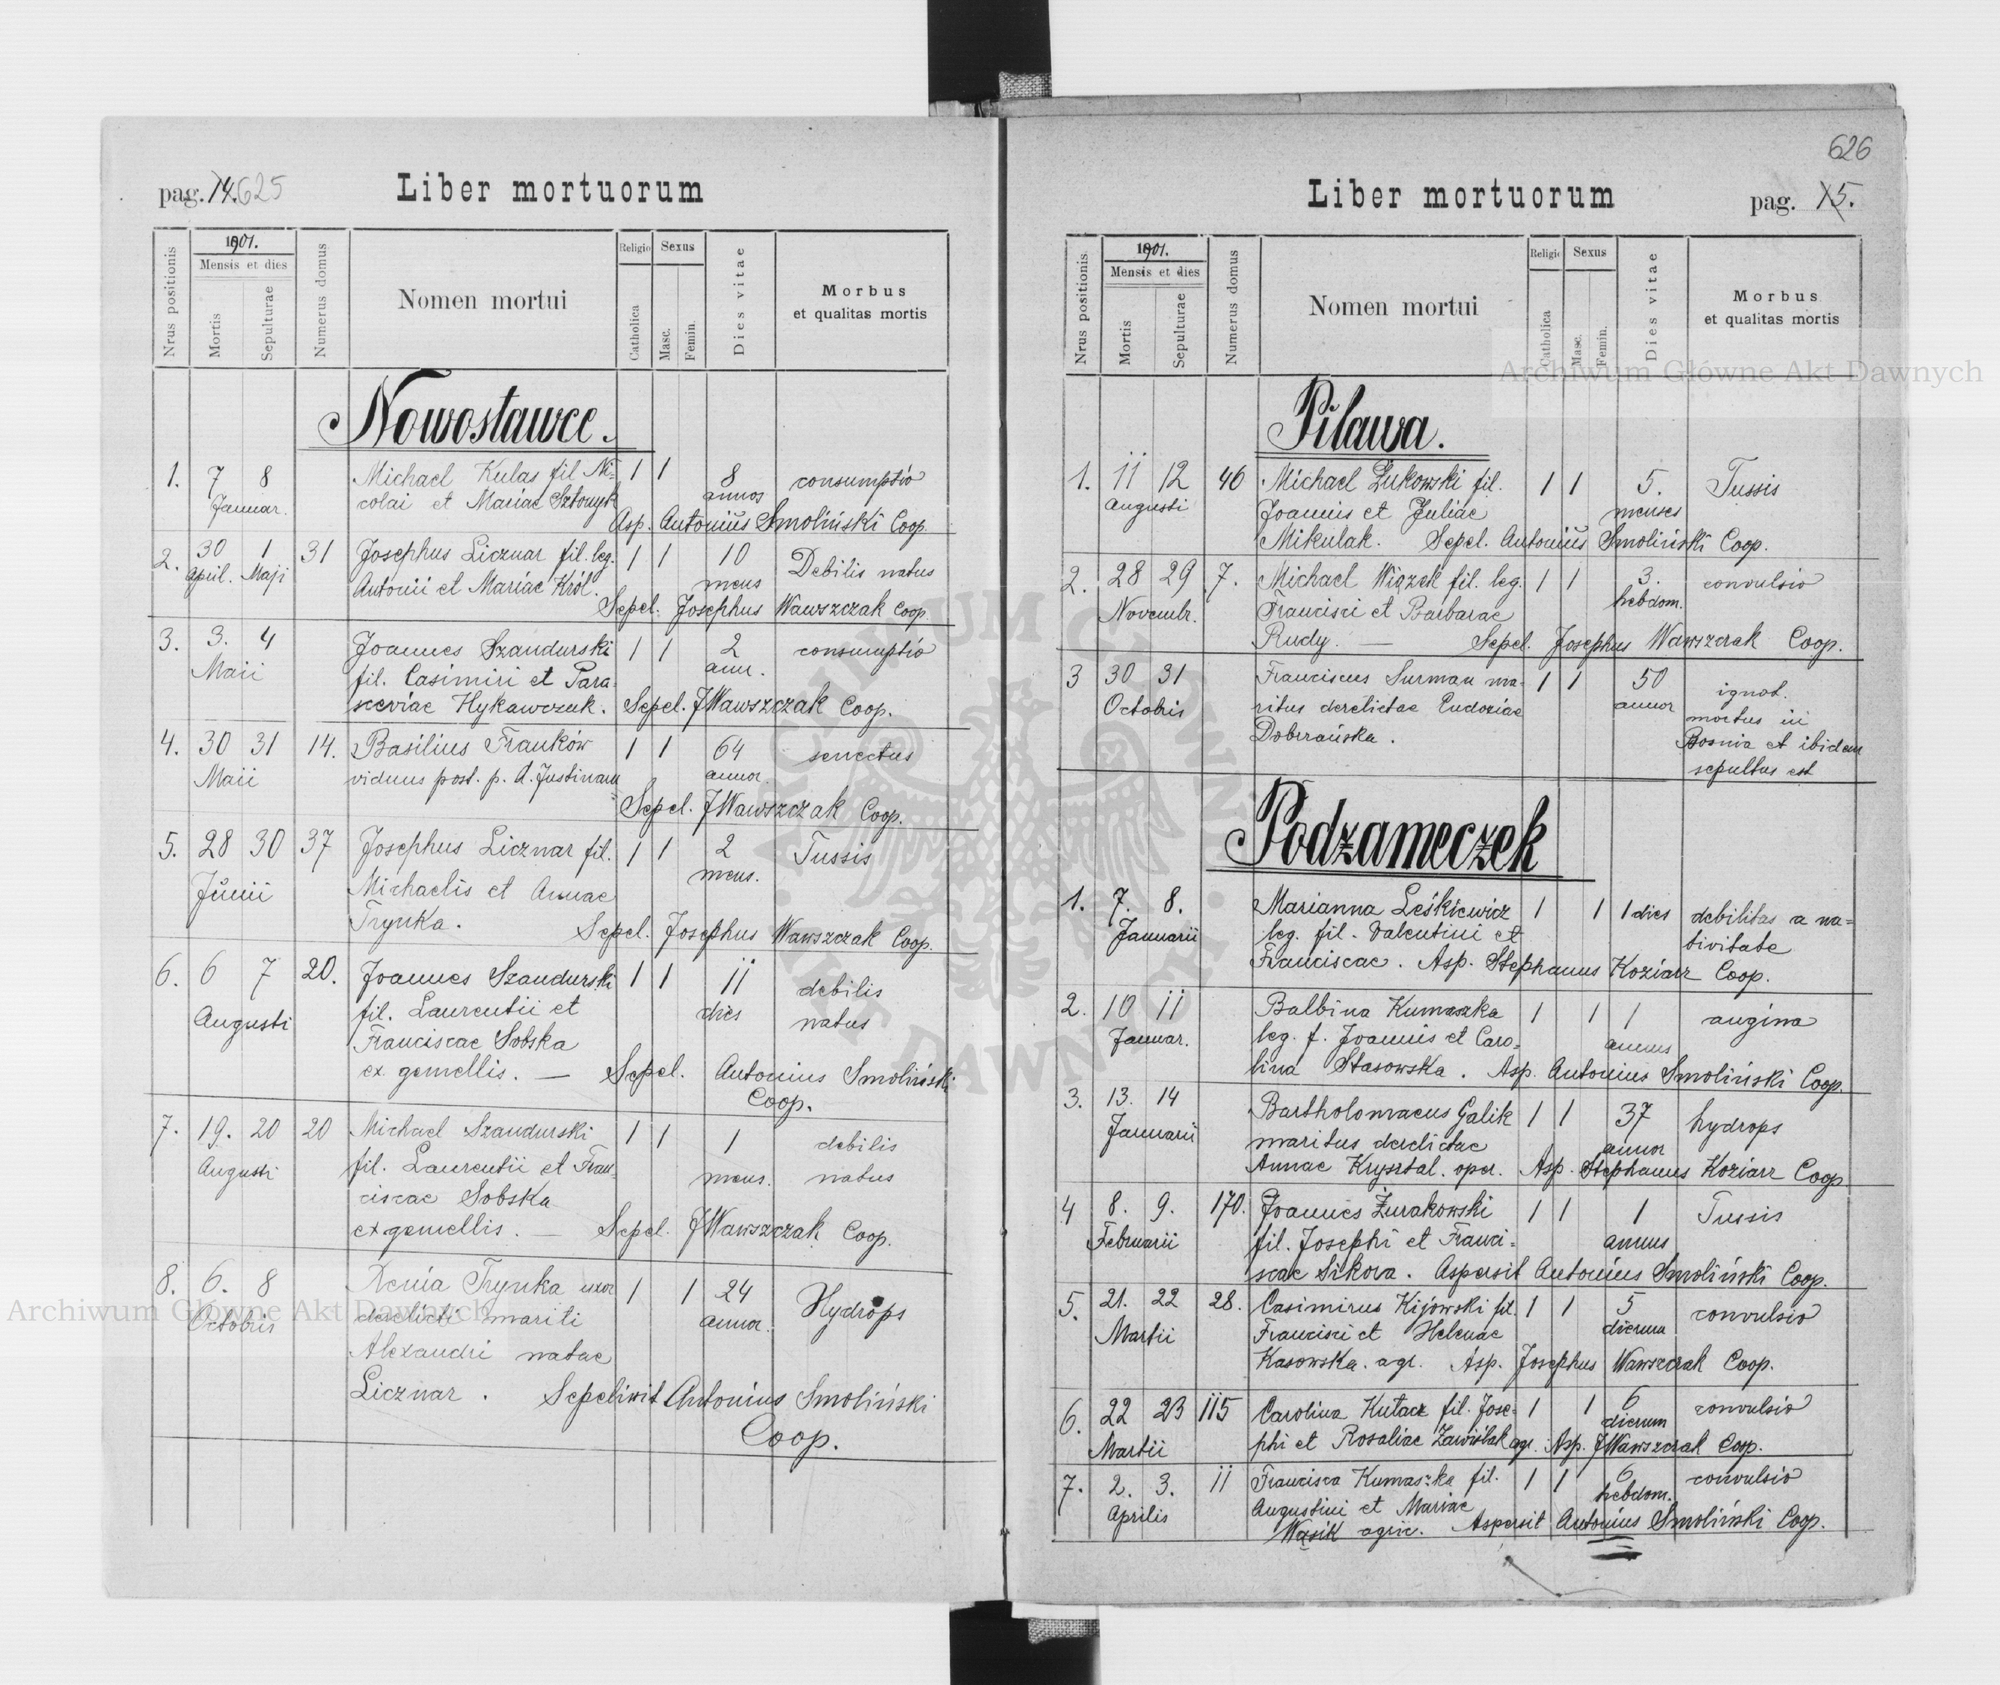 pag. 14. 625
Liber mortuorum
Nrus positionis
1901.
Mensis et dies
Mortis
Sepulturae
Numerus domus
Nomen mortui
Religio
Catholica
Sexus
Masc.
Femin.
Dies vitae
Morbus
et qualitas mortis
Nowostawce.
1. 7 8 Michael Kulas fil Ni= 1 1 8 consumptio
Januar. colai et Mariae annos
Asp. Antonius Smoliński Coop.
2. 30 1 31 Josephus Licznar fil. leg. 1 1 10 Debilis natus
April. Maji Antonii et Mariae Król. mens
Sepel. Josephus Wawszczak Coop.
3. 3. 4 Joannes Szandurski 1 1 2 consumptio
Maii fil. Casimiri et Para= ann.
sceviae Hykawczuk. Sepel. JWawszczak Coop.
4. 30 31 14. Basilius Franków 1 1 64 senectus
Maii viduus post. p. d. Justinam annor.
Sepel. JWawszczak Coop.
5. 28 30 37 Josephus Licznar fil. 1 1 2 Tussis
Junii Michaelis et Annae mens.
Trynka. Sepel. Josephus Wawszczak Coop.
6. 6 7 20. Joannes Szandurski 1 1 11 debilis
Augusti fil. Laurentii et dies natus
Franciscae Sobska
ex gemellis. — Sepel. Antonius Smoliński
Coop.
7. 19. 20 20 Michael Szandurski 1 1 1 debilis
Augusti fil. Laurentii et Fran= mens. natus
ciscae Sobska
ex gemellis. — Sepel. JWawszczak Coop.
8. 6. 8 Xenia Trynka uxor 1 1 24 Hydrops
Octobris derelicti mariti annor.
Alexandri natae
Licznar. Sepelivit Antonius Smoliński
Coop.
626
Liber mortuorum
pag. 15.
Nrus positionis
1901.
Mensis et dies
Mortis
Sepulturae
Numerus domus
Nomen mortui
Religio
Catholica
Sexus
Masc.
Femin.
Dies vitae
Morbus
et qualitas mortis
Archiwum Główne Akt Dawnych
Pilawa.
1. 11 12 46 Michael Żukowski fil. 1 1 5. Tussis
Augusti Joannis et Juliae menses
Mikulak. Sepel. Antonius Smoliński Coop.
2. 28 29 7. Michael Wiązek fil. leg. 1 1 3. convulsio
Novembr. Francisci et Barbarae hebdom.
Rudy. — Sepel. Josephus Wawszczak Coop.
3 30 31 Franciscus Surman ma= 1 1 50 ignot.
Octobris ritus derelictae Eudoxiae annor mortus in
Dobrzańska. Bosnia et ibidem
sepultus est
Podzameczek
1. 7. 8. Marianna Leśkiewicz 1 1 1 dies debilitas a na=
Januarii leg. fil. Valentini et tivitate
Franciscae. Asp. Stephanus Koziarz Coop.
2. 10 11 Balbina Kumaszka 1 1 1 angina
Januar. leg. f. Joannis et Caro= annus
lina Stasowska. Asp. Antonius Smoliński Coop.
3. 13. 14 Bartholomaeus Galik 1 1 37 hydrops
Januarii maritus derelictae annor
Annae Krysztal. oper. Asp. Stephanus Koziarz Coop
4 8. 9. 170. Joannes Żurakowski 1 1 1 Tussis
Februarii fil. Josephi et Franci= annus
scae Sikora. Aspersit Antonius Smoliński Coop.
5. 21. 22 28. Casimirus Kijowski fil. 1 1 5 convulsio
Martii Francisci et Helenae dierum
Kasowska. agr. Asp. Josephus Wawszczak Coop.
6. 22 23 115 Carolina Kutacz fil. Jose= 1 1 6 convulsio
Martii phi et Rosaliae Zawiślak agr. Asp. JWawszczak Coop. dierum
7. 2. 3. 11 Francisca Kumaszka fil. 1 1 6 convulsio
Aprilis Augustini et Mariae hebdom.
Wąsik agric. Aspersit Antonius Smoliński Coop.
Archiwum Główne Akt Dawnych
ARCHIWUM GŁÓWNE AKT DAWNYCH